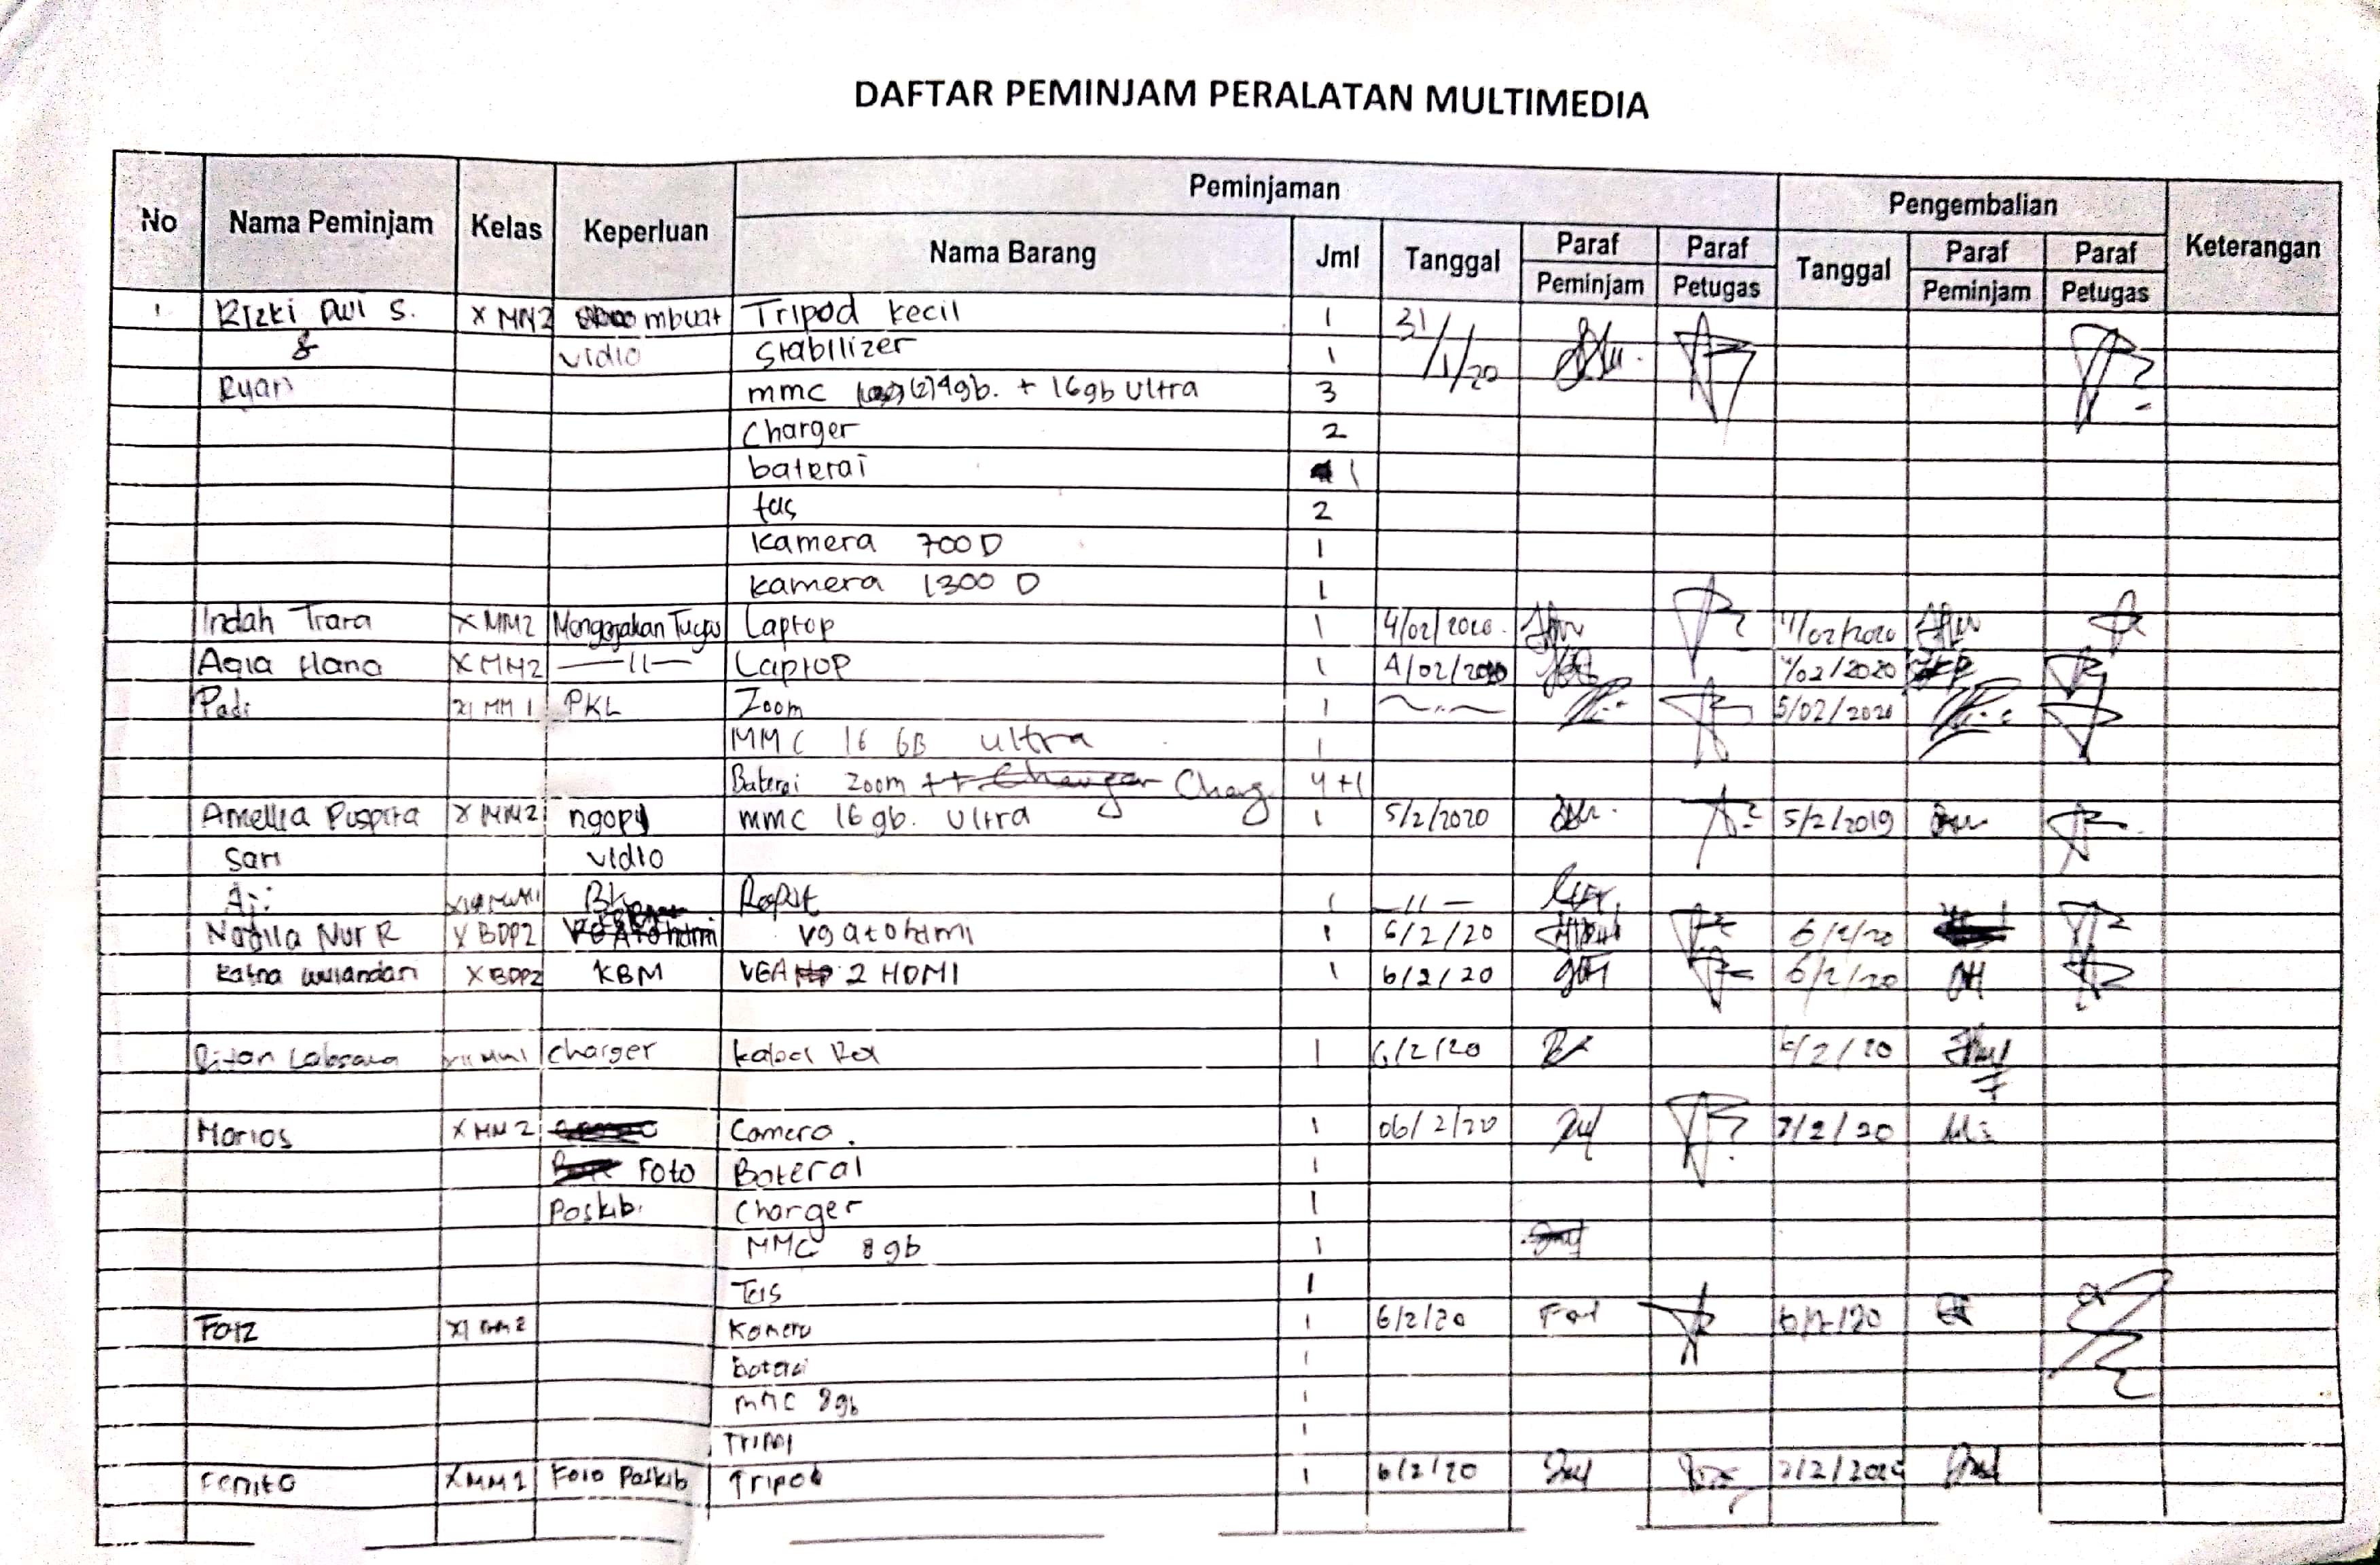 DAFTAR PEMINJAM PERALATAN MULTIMEDIA
No Nama Peminjam Kelas Keperluan Peminjaman Pengembalian Keterangan
Nama Barang Jml Tanggal Paraf Paraf Tanggal Paraf Paraf
Peminjam Petugas Peminjam Petugas
1 Rizki Dwi S. X MM2 mbuat Tripod kecil 1 31/1/20
& vidio Stabilizer 1
Ryan mmc (2) 4gb. + 16gb Ultra 3
Charger 2
baterai 1
tas 2
Kamera 700 D 1
kamera 1300 D 1
Indah Trara X MM2 Mengerjakan Tugas Laptop 1 4/02/2020. 4/02/2020
Aqia Hana X MM2 —11— Laptop 1 4/02/2020 4/02/2020
Padi XI MM 1 PKL Zoom 1 5/02/2020
MMC 16 GB ultra 1
Baterai zoom + Charg 4+1
Amellia Puspita X MM2 ngopy mmc 16 gb. Ultra 1 5/2/2020 5/2/2019
Sari vidio
Aji 1 —11—
Nadila Nur R X BDP2 vgatohdmi 1 6/2/20 6/2/20
Ratna wulandari X BDP2 KBM VGA 2 HDMI 1 6/2/20 6/2/20
charger kabel 1 6/2/20 6/2/20
Marios X MM 2 Camera. 1 06/2/20 7/2/20
Foto Baterai 1
Paskib. Charger 1
MMC 8gb 1
Tas 1
Faiz XI MM2 Kamera 1 6/2/20 6/2/20
baterai 1
mmc 8gb 1
1
Fenito X MM2 Foto Paskib Tripod 1 6/2/20 7/2/2020